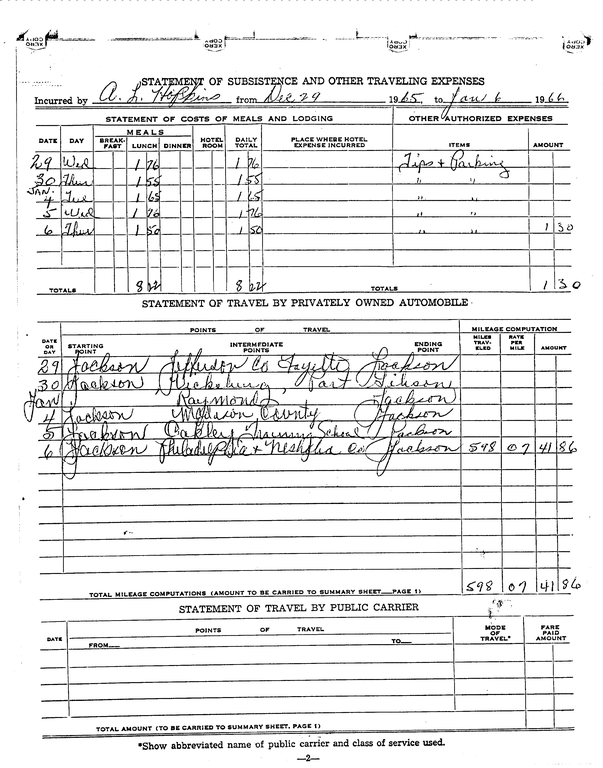 XERO COPY XERO COPY XERO COPY XERO COPY
STATEMENT OF SUBSISTENCE AND OTHER TRAVELING EXPENSES
Incurred by A. L. Hopkins from Dec 29 1965, to Jan 6 1966
STATEMENT OF COSTS OF MEALS AND LODGING OTHER AUTHORIZED EXPENSES
DATE DAY MEALS BREAK-FAST LUNCH DINNER HOTEL ROOM DAILY TOTAL PLACE WHERE HOTEL EXPENSE INCURRED ITEMS AMOUNT
29 Wed 1 76 1 76 Tips + Parking
30 Thur 1 55 1 55 " "
JAN. 4 Tue 1 65 1 65 " "
5 Wed 1 76 1 76 " "
6 Thur 1 50 1 50 " " 1 30
TOTALS 8 22 8 22 TOTALS 1 30
STATEMENT OF TRAVEL BY PRIVATELY OWNED AUTOMOBILE
DATE OR DAY POINTS OF TRAVEL MILEAGE COMPUTATION
STARTING POINT INTERMEDIATE POINTS ENDING POINT MILES TRAV-ELED RATE PER MILE AMOUNT
29 Jackson Jefferson Co Fayette Jackson
30 Jackson Vicksburg, Port Gibson
Jan. Raymond Jackson
4 Jackson Madison County Jackson
5 Jackson Oakley Training School Jackson
6 Jackson Philadelphia + Neshoba Co Jackson 598 07 41 86
TOTAL MILEAGE COMPUTATIONS (AMOUNT TO BE CARRIED TO SUMMARY SHEET PAGE 1) 598 07 41 86
STATEMENT OF TRAVEL BY PUBLIC CARRIER
DATE POINTS OF TRAVEL MODE OF TRAVEL* FARE PAID AMOUNT
FROM TO
TOTAL AMOUNT (TO BE CARRIED TO SUMMARY SHEET, PAGE 1)
*Show abbreviated name of public carrier and class of service used.
—2—